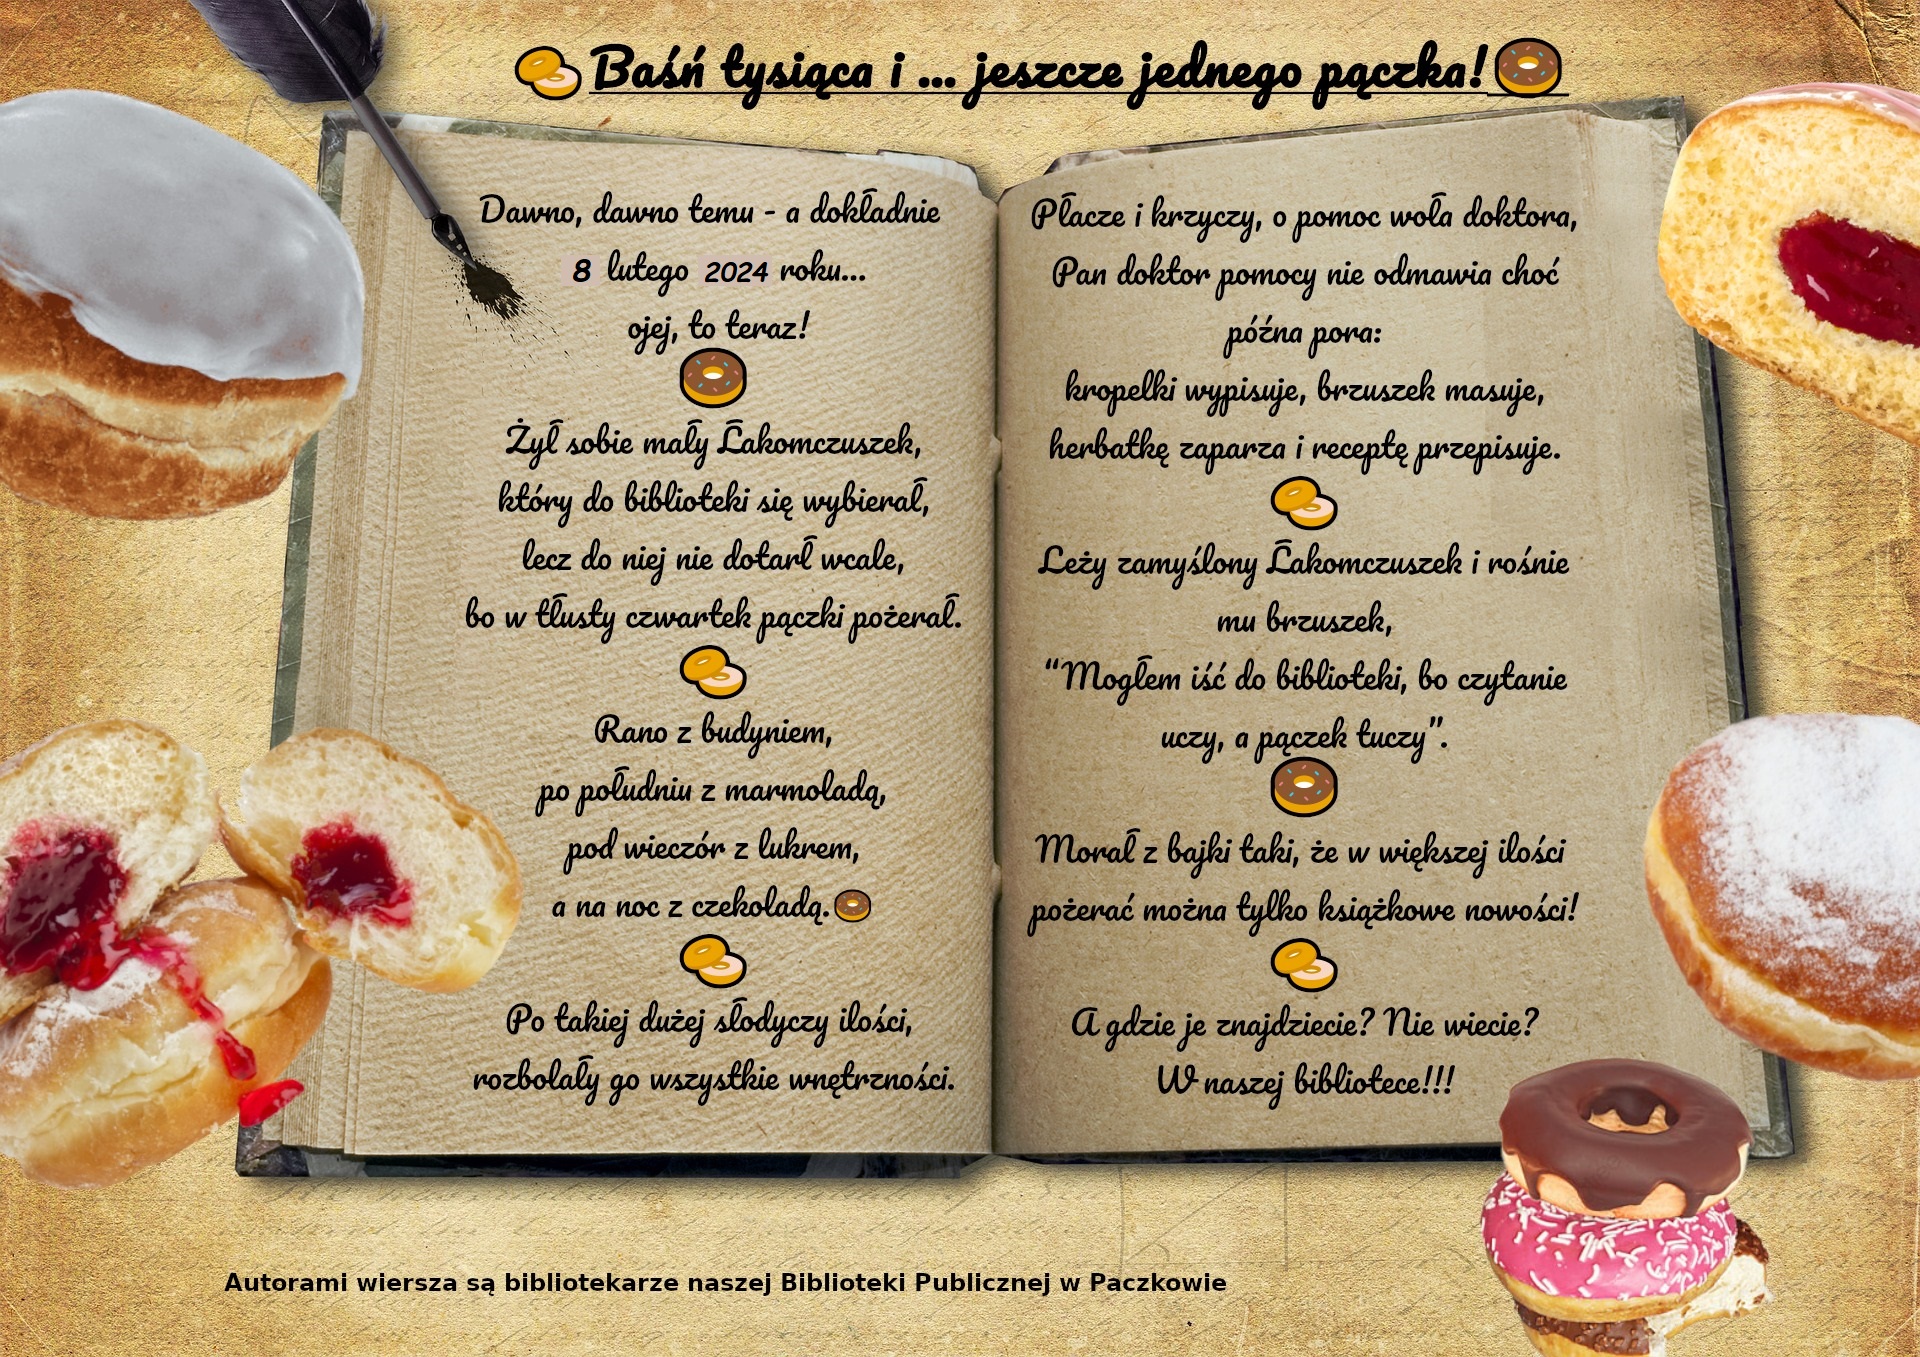 Baśń tysiąca i ... jeszcze jednego pączka!
Dawno, dawno temu - a dokładnie
8 lutego 2024 roku...
ojej, to teraz!
Żył sobie mały Łakomczuszek,
który do biblioteki się wybierał,
lecz do niej nie dotarł wcale,
bo w tłusty czwartek pączki pożerał.
Rano z budyniem,
po południu z marmoladą,
pod wieczór z lukrem,
a na noc z czekoladą.
Po takiej dużej słodyczy ilości,
rozbolały go wszystkie wnętrzności.
Płacze i krzyczy, o pomoc woła doktora,
Pan doktor pomocy nie odmawia choć
późna pora:
kropelki wypisuje, brzuszek masuje,
herbatkę zaparza i receptę przepisuje.
Leży zamyślony Łakomczuszek i rośnie
mu brzuszek,
“Mogłem iść do biblioteki, bo czytanie
uczy, a pączek tuczy”.
Morał z bajki taki, że w większej ilości
pożerać można tylko książkowe nowości!
A gdzie je znajdziecie? Nie wiecie?
W naszej bibliotece!!!
Autorami wiersza są bibliotekarze naszej Biblioteki Publicznej w Paczkowie